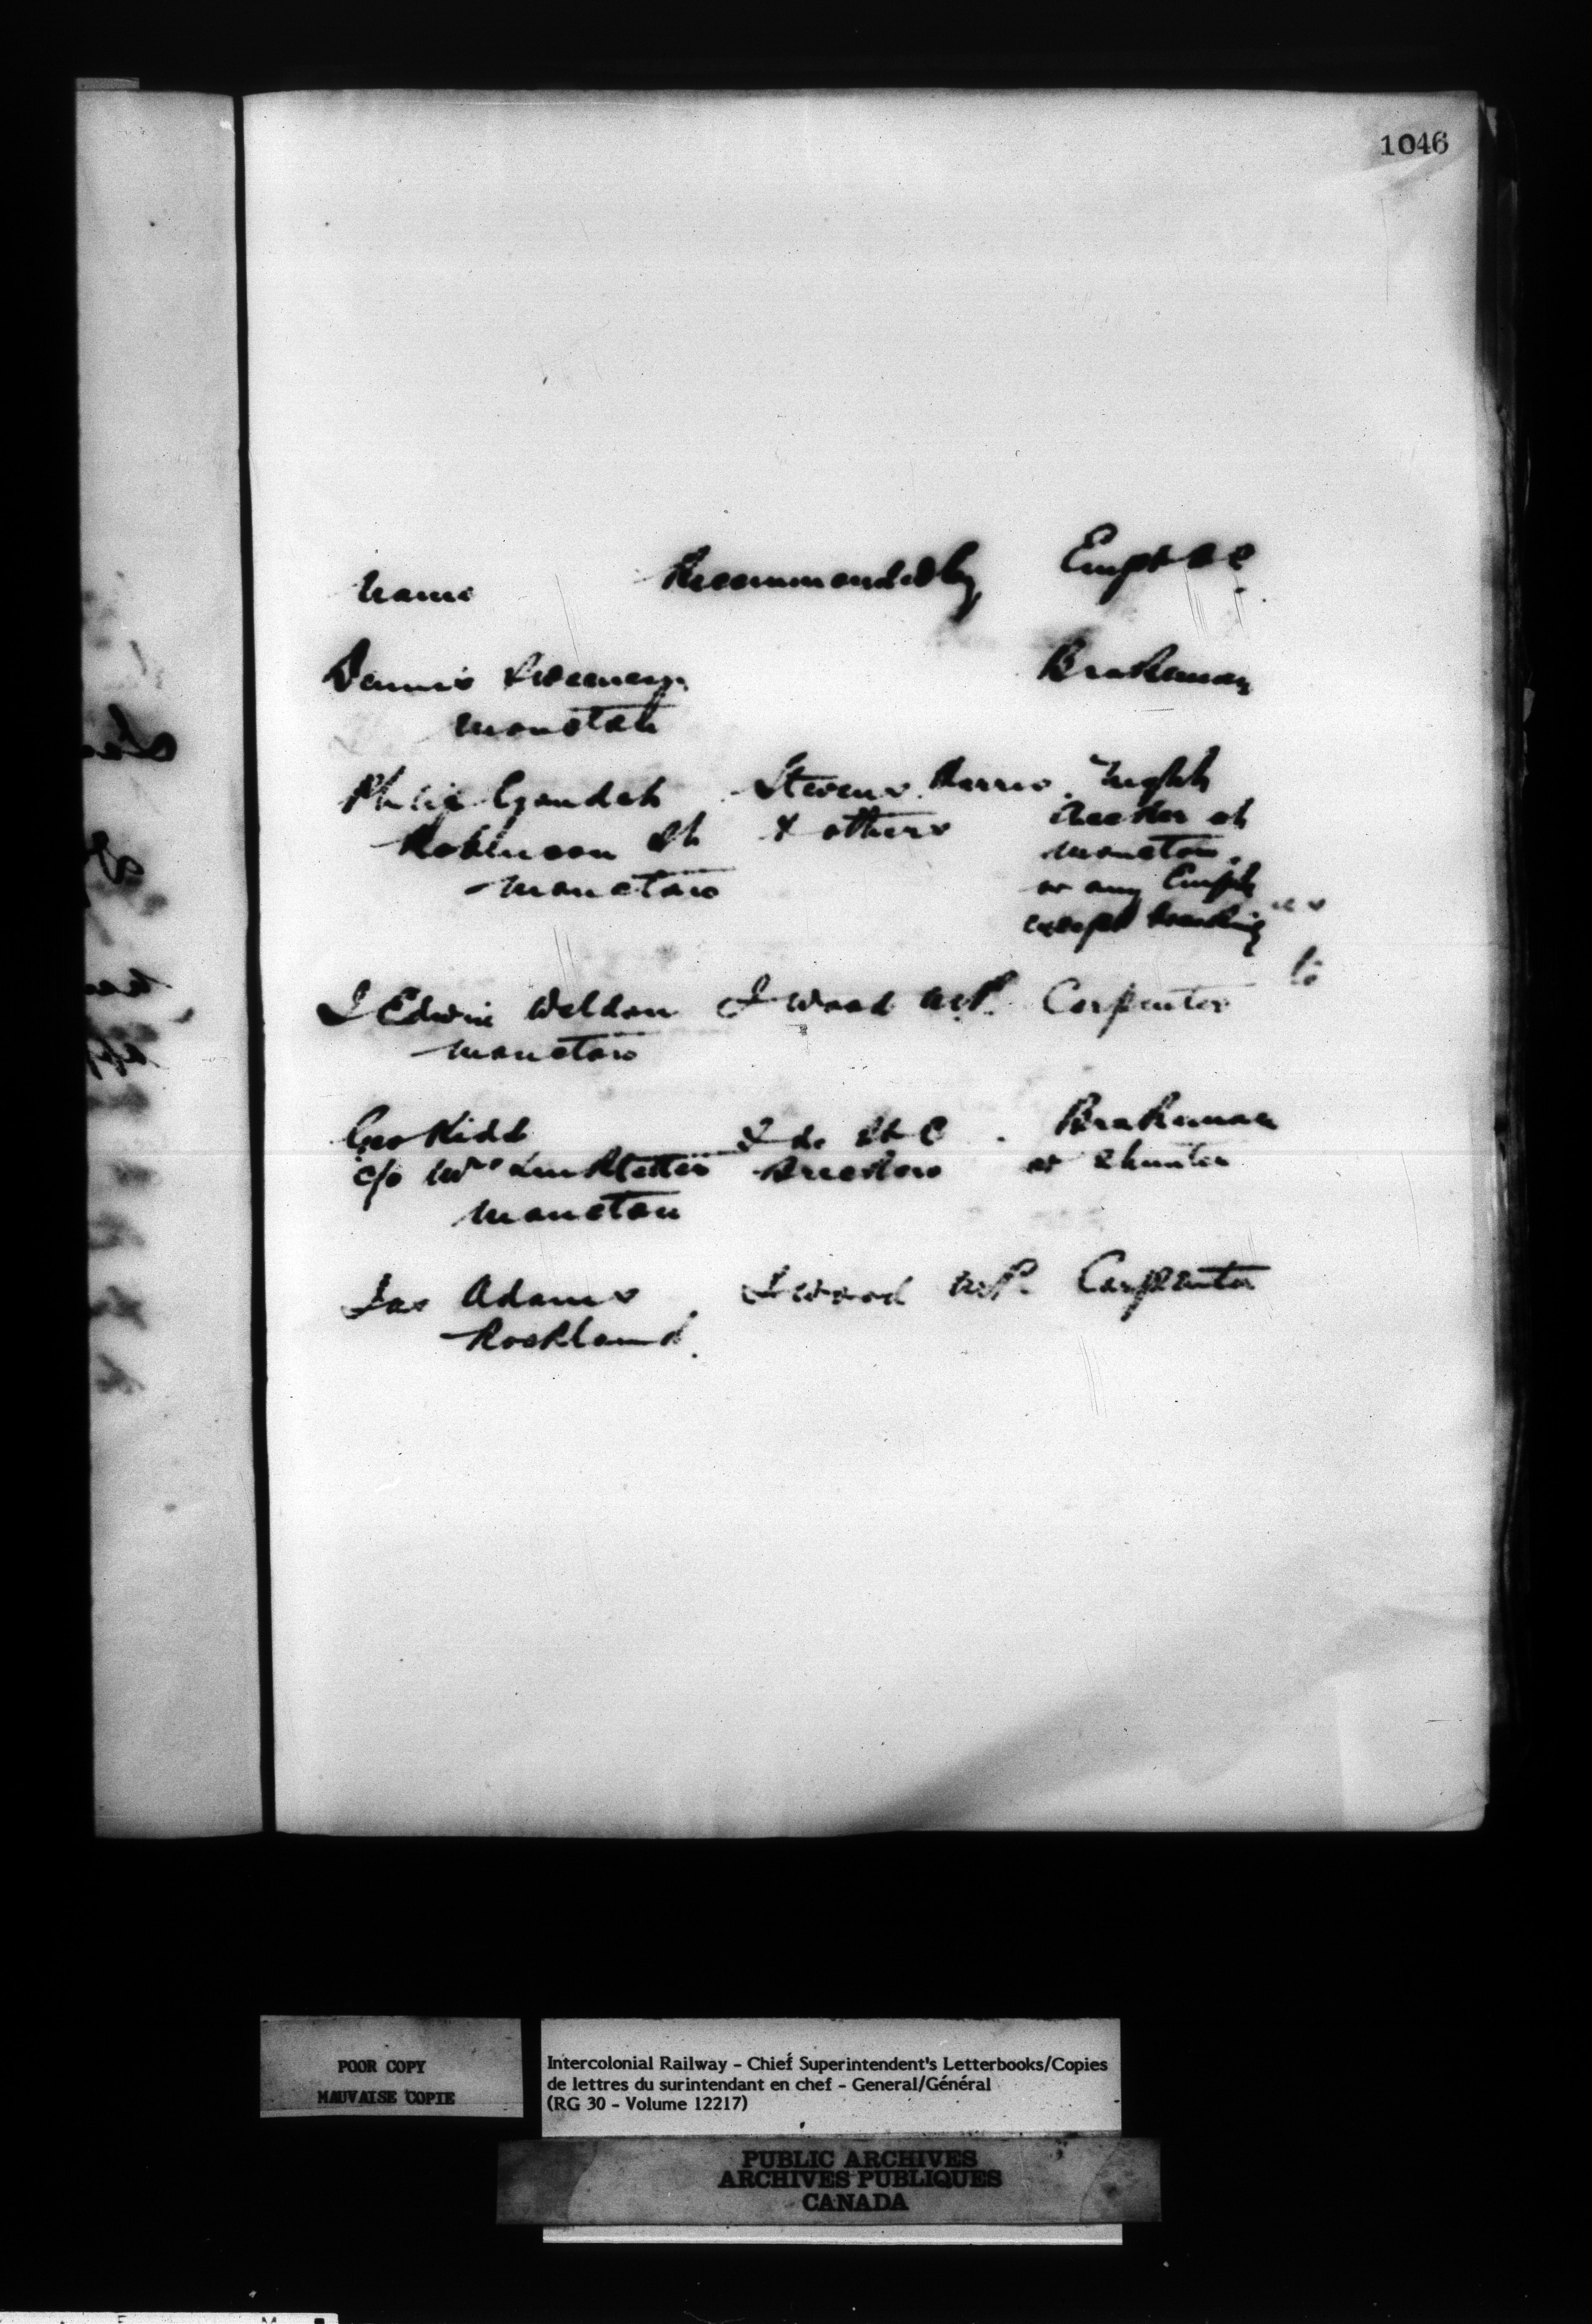 1046
Name Recommended by Emp
Dennis Sweeney Brakeman
Moncton
Gaudet Stevens Harris Night
Robinson St & others at
Moncton Moncton
or any Empl
except braking
J Edwin Weldon J Wood MP. Carpenter
Moncton
Geo Kidd Brakeman
c/o Wm or Shunter
Moncton
Jas Adams J Wood MP. Carpenter
Rockland.
POOR COPY
MAUVAISE COPIE
Intercolonial Railway - Chief Superintendent's Letterbooks/Copies
de lettres du surintendant en chef - General/Général
(RG 30 - Volume 12217)
PUBLIC ARCHIVES
ARCHIVES PUBLIQUES
CANADA